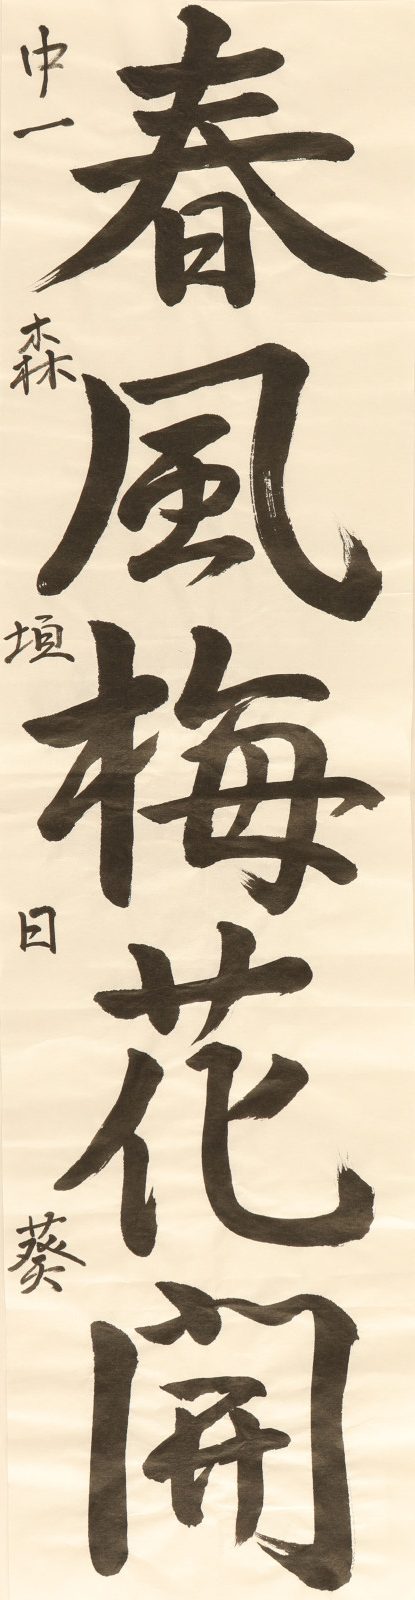 春風梅花開
中一 森垣日葵